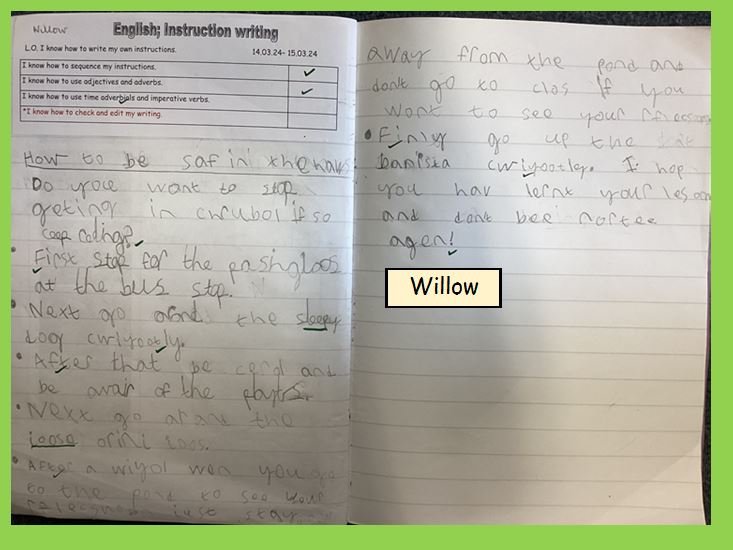 Willow
English; Instruction writing
L.O. I know how to write my own instructions.
14.03.24- 15.03.24
I know how to sequence my instructions.
I know how to use adjectives and adverbs.
I know how to use time adverbials and imperative verbs.
*I know how to check and edit my writing.
How to be saf in the haws
Do you want to stop
geting in chrubol if so
ceep
First stop for the
at the bus stop.
Next go arond the sleepy
dog cwiyootly.
After that be cerd and
be awar of the
Next go arand the
loose
After a wiyol wen you go
to the pond to see your
just stay
away from the pond and
dont go to clos if you
wont to see your
Finley go up the
banista cwiyootley. I hop
you hav lernt your leson
and dont bee nortee
agen!
Willow